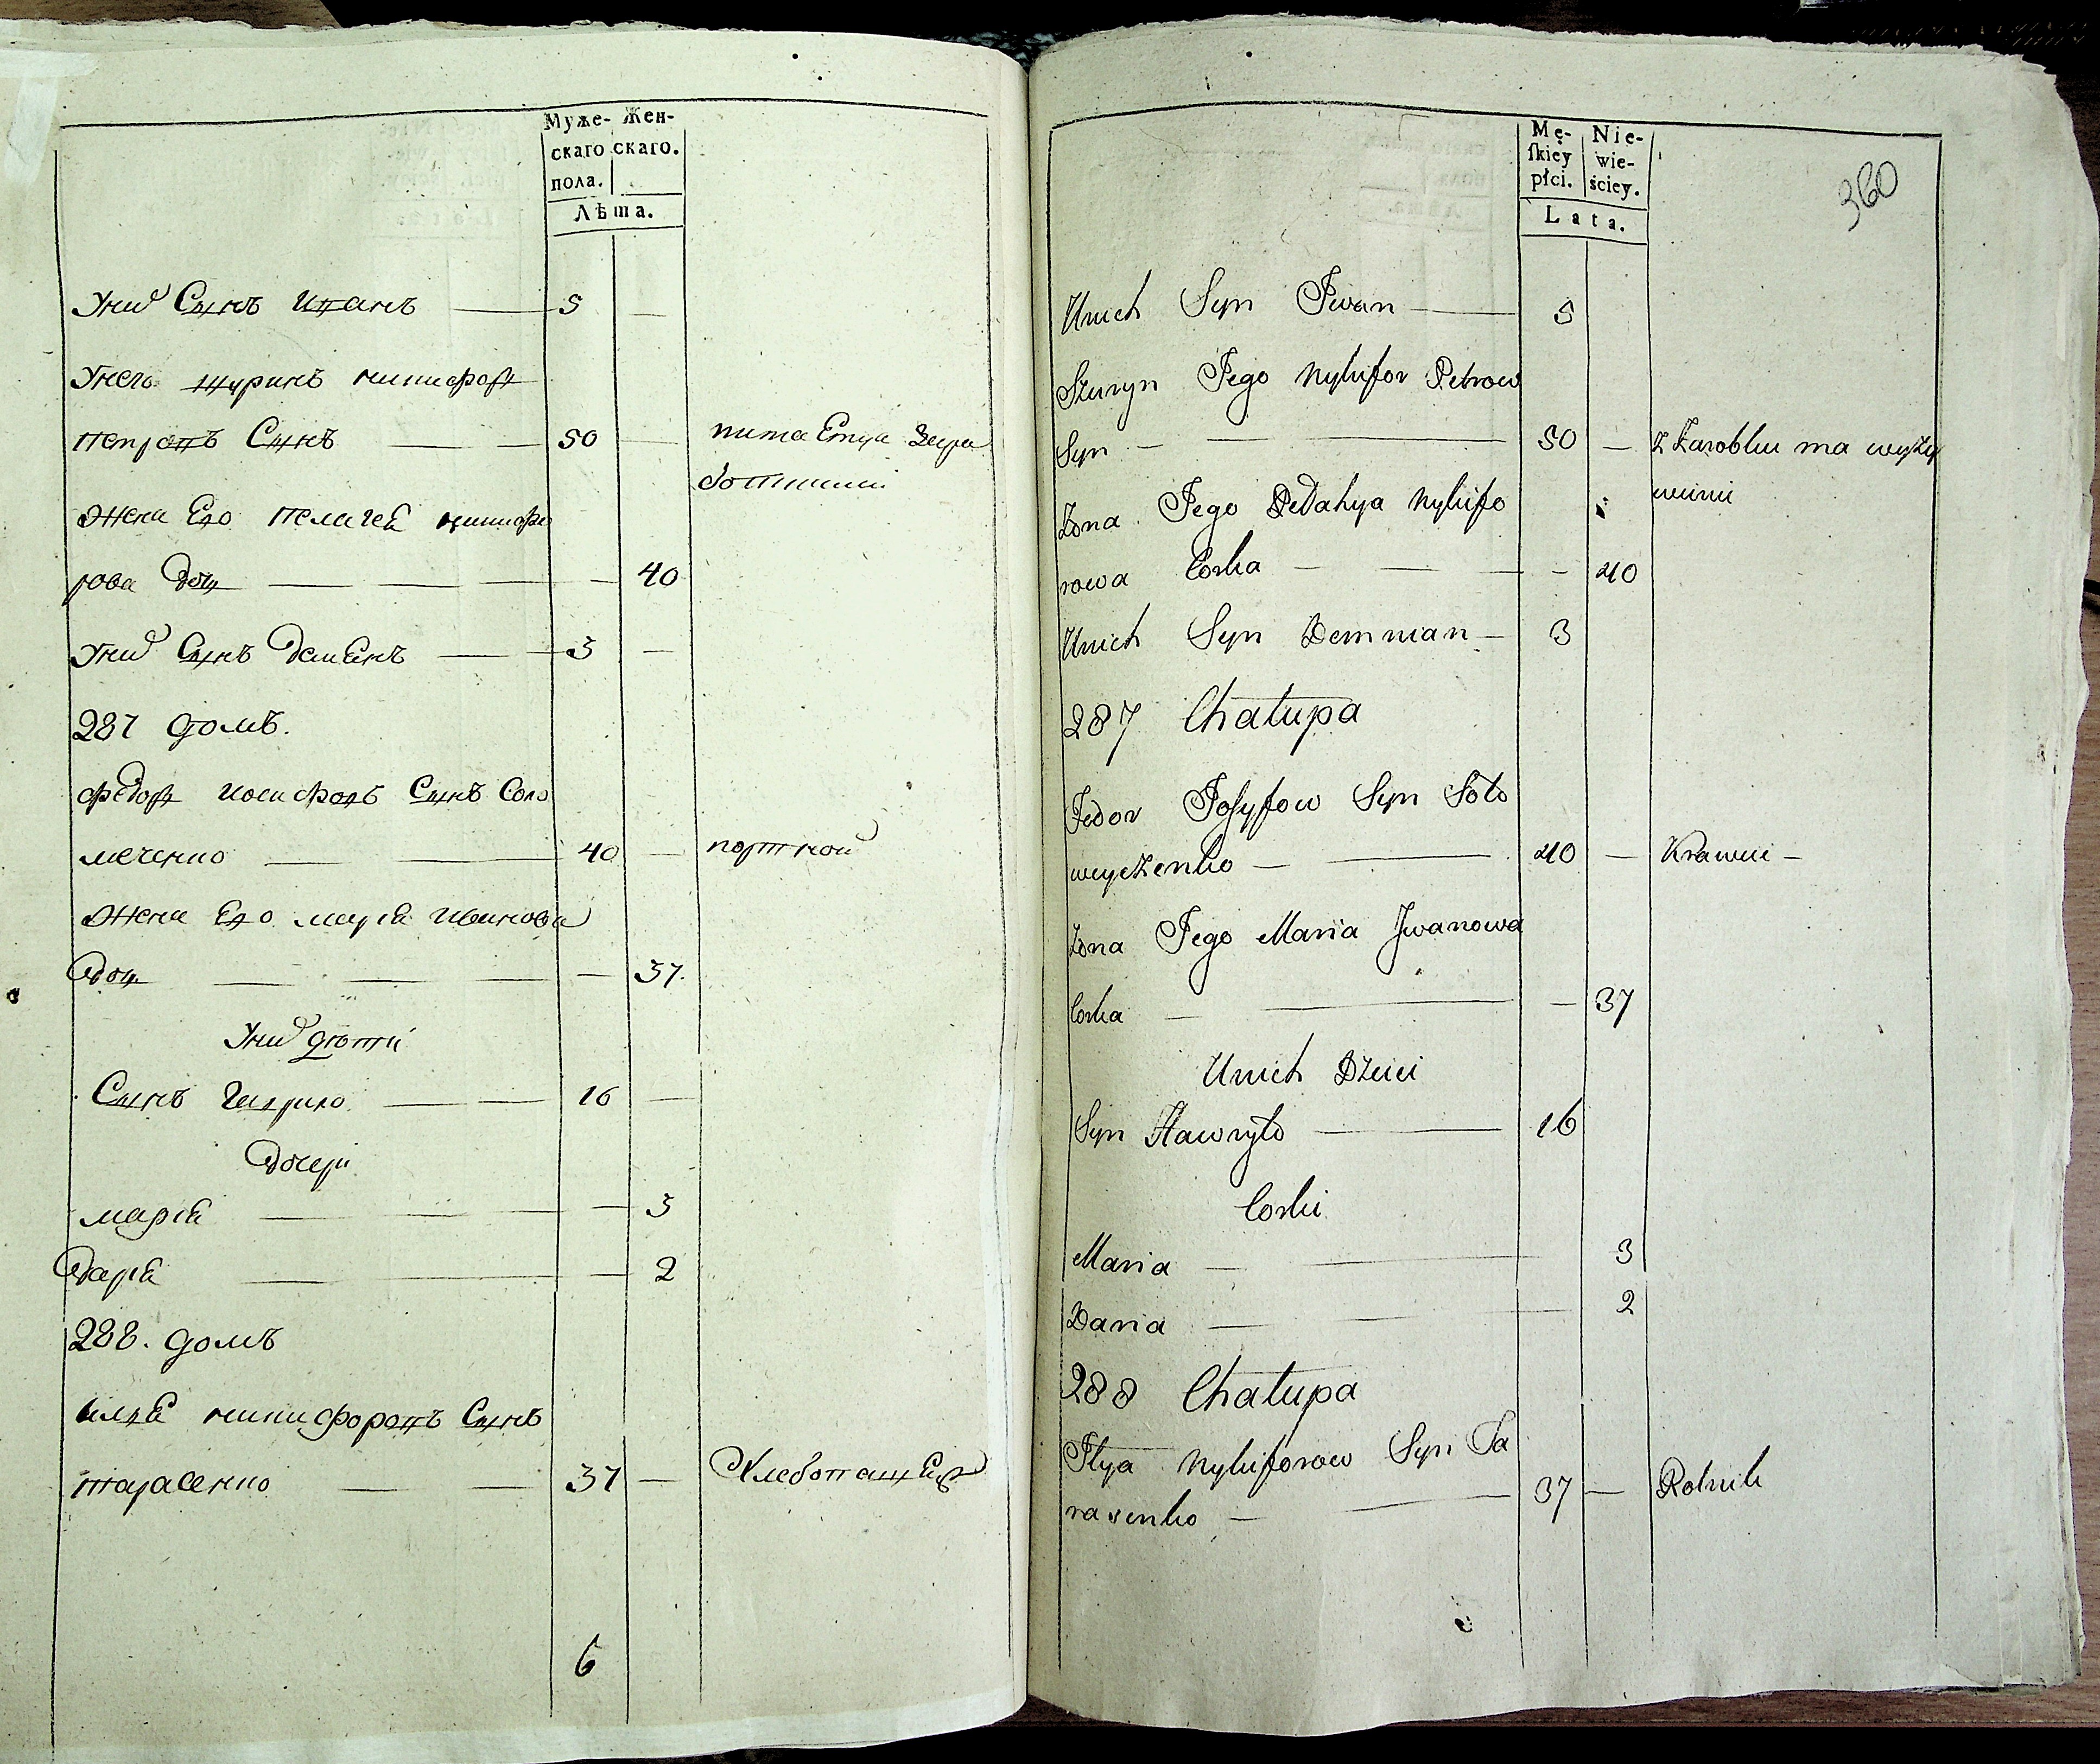 Муже- Жен-
скаго скаго.
пола.
Лѣта.
Уних Сынъ Иванъ — 5 —
Унего шуринъ никифор
петровъ Сынъ — — 50 — питаетца зара
ботками
Жена Его пелагея никифо
рова доч — — — — 40
Уних Сынъ Демянъ — 3 —
287 домъ.
Федор иосифовъ Сынъ Соло
меченко — — 40 — портной
Жена Его марья иванова
доч — — — — 37.
Уних дѣти
Сынъ Гаврило — — 16 —
дочери
марья — — — — 3
дарья — — — 2
288. домъ
илья никифоровъ Сынъ
тарасенко — — 37 — Хлебопашецъ
6
Mę- Nie-
skiey wie-
płci. ściey.
Lata.
360
Unich Syn Jwan — 5
Szuryn Jego Nykifor Petrow
Syn — — 50 — z Zarobku ma wyży
winie
Żona Jego Pelahya Nykifo
rowa Corka — — — — 40
Unich Syn Demnian — 3
287 Chałupa
Fedor Josyfow Syn Soło
wyczenko — — 40 — Krawiec —
Żona Jego Maria Jwanowa
Corka — — — 37
Unich Dzieci
Syn Hawryło — 16
Corki
Maria — — 3
Daria — — — 2
288 Chałupa
Jlya Nykiforow Syn Ta
rasenko — — 37 — Rolnik